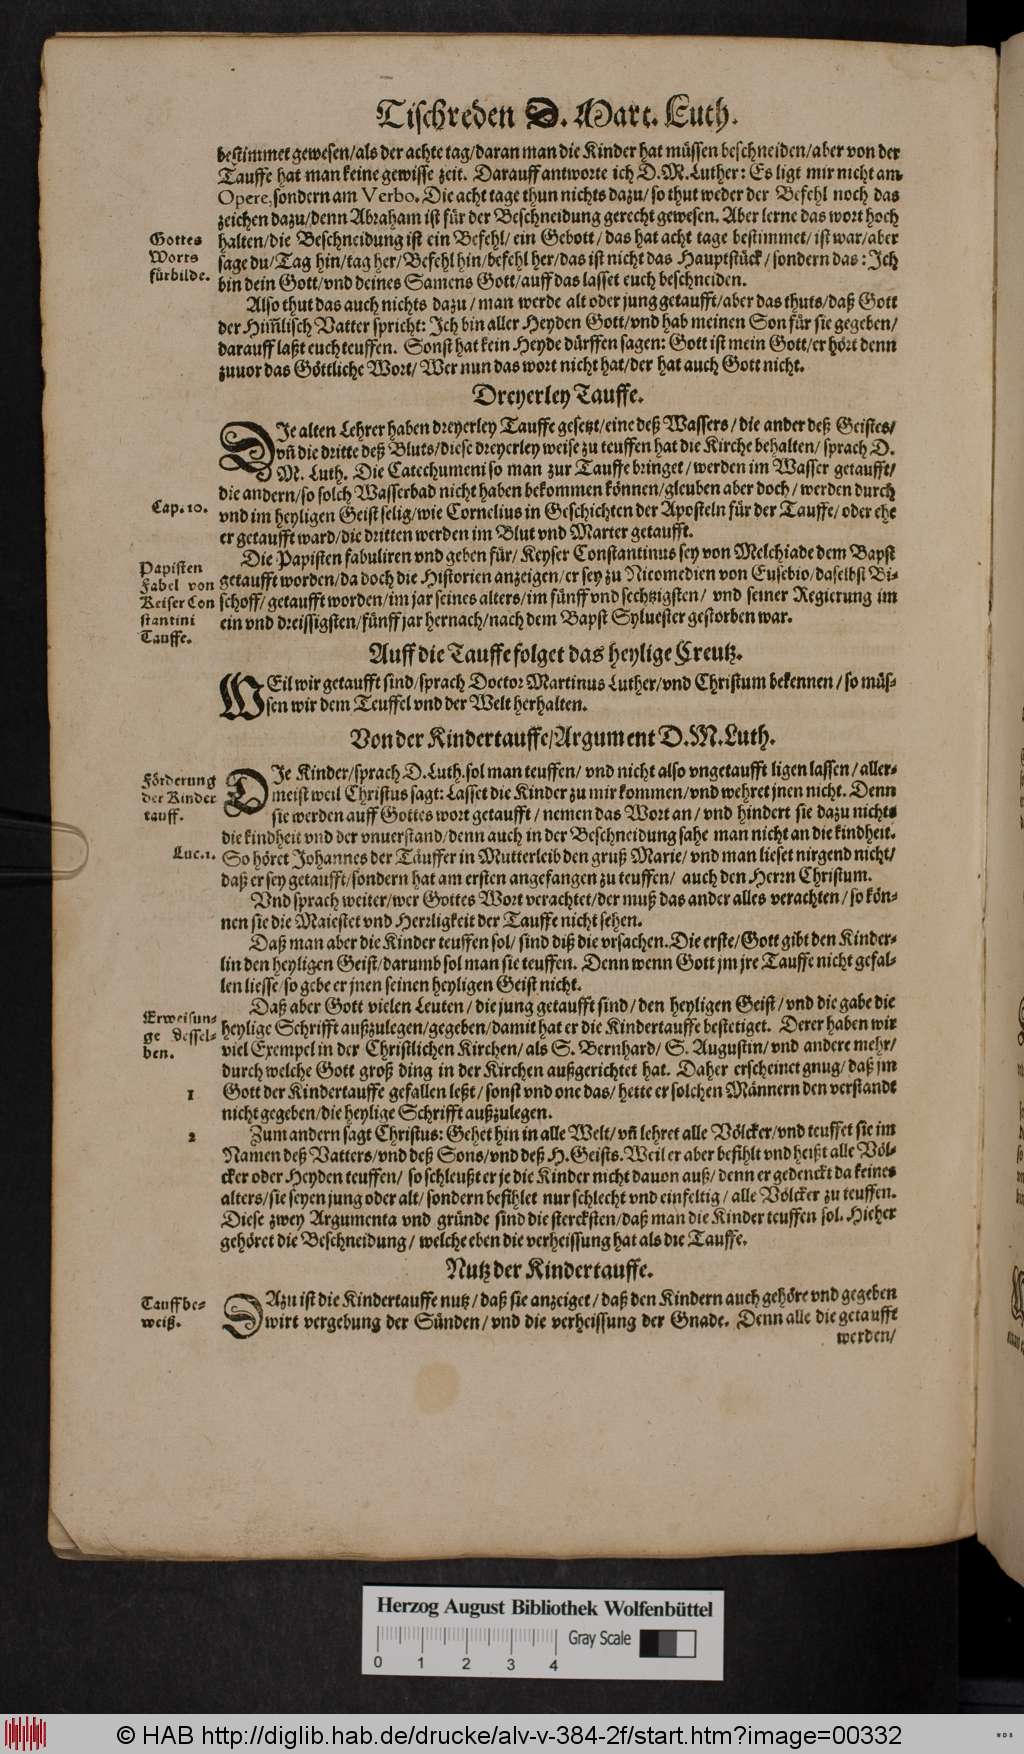 Tischreden D. Mart. Luth.
bestimmet gewesen/als der achte tag/daran man die Kinder hat müssen beschneiden/aber von der
Tauffe hat man keine gewisse zeit. Darauff antworte ich D.M.Luther: Es ligt mir nicht am
Opere, sondern am Verbo. Die acht tage thun nichts dazu/ so thut weder der Befehl noch das
zeichen dazu/denn Abraham ist für der Beschneidung gerecht gewesen. Aber lerne das wort hoch
Gottes
Worts
fürbilde.
halten/die Beschneidung ist ein Befehl/ ein Gebott/ das hat acht tage bestimmet/ ist war/aber
sage du/ Tag hin/tag her/Befehl hin/befehl her/das ist nicht das Hauptstück/ sondern das: Ich
bin dein Gott/vnd deines Samens Gott/auff das lasset euch beschneiden.
Also thut das auch nichts dazu/ man werde alt oder jung getaufft/aber das thuts/daß Gott
der Him̃lisch Vatter spricht: Ich bin aller Heyden Gott/vnd hab meinen Son für sie gegeben/
darauff laßt euch teuffen. Sonst hat kein Heyde dürffen sagen: Gott ist mein Gott/er hört denn
zuuor das Göttliche Wort/ Wer nun das wort nicht hat/der hat auch Gott nicht.
Dreyerley Tauffe.
DIe alten Lehrer haben dreyerley Tauffe gesetzt/eine deß Wassers/ die ander deß Geistes/
vñ die dritte deß Bluts/diese dreyerley weise zu teuffen hat die Kirche behalten/ sprach D.
M. Luth. Die Catechumeni so man zur Tauffe bringet/ werden im Wasser getaufft/
die andern/so solch Wasserbad nicht haben bekommen können/gleuben aber doch/ werden durch
Cap. 10.
vnd im heyligen Geist selig/wie Cornelius in Geschichten der Aposteln für der Tauffe/ oder ehe
er getaufft ward/die dritten werden im Blut vnd Marter getaufft.
Papisten
Fabel von
Keiser Con
stantini
Tauffe.
Die Papisten fabuliren vnd geben für/ Keyser Constantinus sey von Melchiade dem Bapst
getaufft worden/da doch die Historien anzeigen/er sey zu Nicomedien von Eusebio/daselbst Bi-
schoff/getaufft worden/im jar seines alters/im fünff vnd sechtzigsten/ vnd seiner Regierung im
ein vnd dreissigsten/fünff jar hernach/nach dem Bapst Syluester gestorben war.
Auff die Tauffe folget das heylige Creutz.
WEil wir getaufft sind/sprach Doctor Martinus Luther/vnd Christum bekennen/ so müs-
sen wir dem Teuffel vnd der Welt herhalten.
Von der Kindertauffe/Argument D.M.Luth.
Förderung
der Kinder
tauff.
DIe Kinder/sprach D.Luth.sol man teuffen/ vnd nicht also vngetaufft ligen lassen/ aller-
meist weil Christus sagt: Lasset die Kinder zu mir kommen/vnd wehret jnen nicht. Denn
sie werden auff Gottes wort getaufft/ nemen das Wort an/ vnd hindert sie dazu nichts
die kindheit vnd der vnuerstand/denn auch in der Beschneidung sahe man nicht an die kindheit.
Luc. 1.
So höret Johannes der Täuffer in Mutterleib den gruß Marie/ vnd man lieset nirgend nicht/
daß er sey getaufft/sondern hat am ersten angefangen zu teuffen/ auch den Herrn Christum.
Vnd sprach weiter/wer Gottes Wort verachtet/der muß das ander alles verachten/ so kön-
nen sie die Maiestet vnd Herrligkeit der Tauffe nicht sehen.
Daß man aber die Kinder teuffen sol/ sind diß die vrsachen. Die erste/ Gott gibt den Kinder-
lin den heyligen Geist/darumb sol man sie teuffen. Denn wenn Gott jm jre Tauffe nicht gefal-
len liesse/so gebe er jnen seinen heyligen Geist nicht.
Erweisun-
ge dessel-
ben.
Daß aber Gott vielen Leuten/ die jung getaufft sind/ den heyligen Geist/ vnd die gabe die
heylige Schrifft außzulegen/gegeben/damit hat er die Kindertauffe bestetiget. Derer haben wir
viel Exempel in der Christlichen Kirchen/ als S. Bernhard/ S. Augustin/ vnd andere mehr/
durch welche Gott groß ding in der Kirchen außgerichtet hat. Daher erscheinet gnug/ daß jm
1
Gott der Kindertauffe gefallen leßt/ sonst vnd one das/ hette er solchen Männern den verstandt
nicht gegeben/die heylige Schrifft außzulegen.
2
Zum andern sagt Christus: Gehet hin in alle Welt/ vñ lehret alle Völcker/vnd teuffet sie im
Namen deß Vatters/vnd deß Sons/vnd deß H.Geists. Weil er aber befihlt vnd heißt alle Völ-
cker oder Heyden teuffen/ so schleußt er je die Kinder nicht dauon auß/ denn er gedenckt da keines
alters/sie seyen jung oder alt/ sondern befihlet nur schlecht vnd einfeltig/ alle Völcker zu teuffen.
Diese zwey Argumenta vnd gründe sind die stercksten/daß man die Kinder teuffen sol. Hieher
gehöret die Beschneidung/ welche eben die verheissung hat als die Tauffe.
Nutz der Kindertauffe.
Tauff be-
weiß.
DAzu ist die Kindertauffe nutz/ daß sie anzeiget/ daß den Kindern auch gehöre vnd gegeben
wirt vergebung der Sünden/ vnd die verheissung der Gnade. Denn alle die getaufft
werden/
Herzog August Bibliothek Wolfenbüttel
Gray Scale
0 1 2 3 4
© HAB http://diglib.hab.de/drucke/alv-v-384-2f/start.htm?image=00332